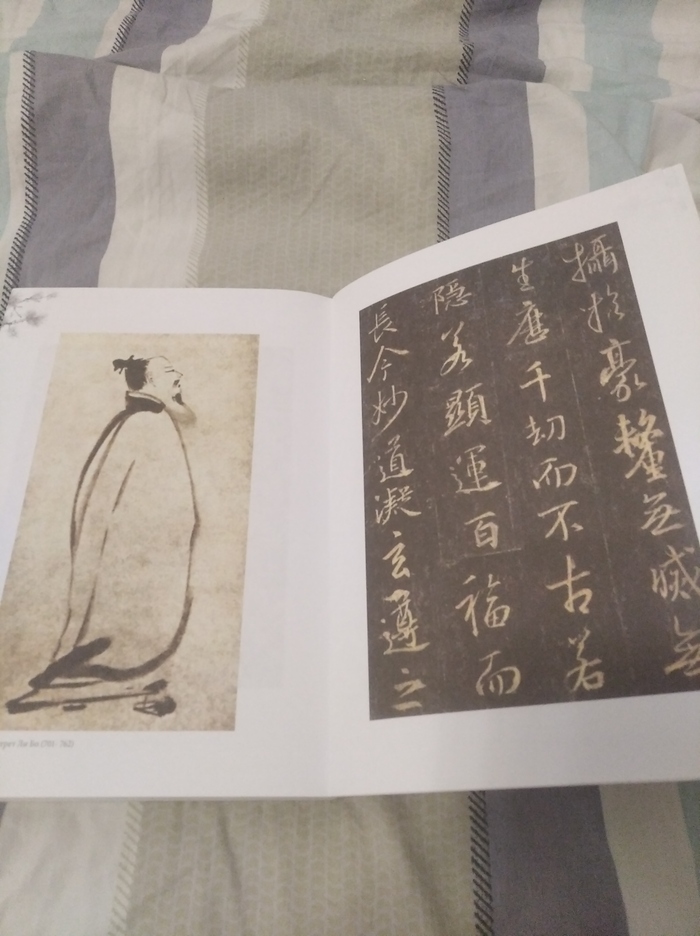 攝於豪釐無滅無
生歷千劫而不古若
隱若顯運百福而
長今妙道凝玄遵之
Ли Бо (701- 763)